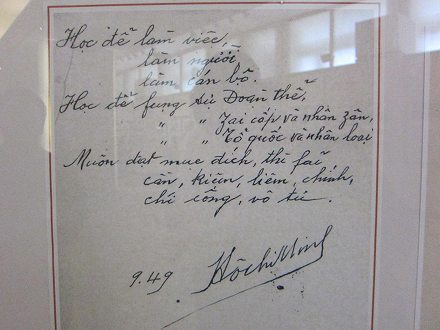 Học để làm việc,
làm người,
làm cán bộ.
Học để fụng sự Đoàn thể,
" " Jai cấp và nhân zân,
" " Tổ quốc và nhân loại
Muốn đạt mục đích, thì fải
cần, kiệm, liêm, chính,
chí công, vô tư.
9.49 Hồ Chí Minh